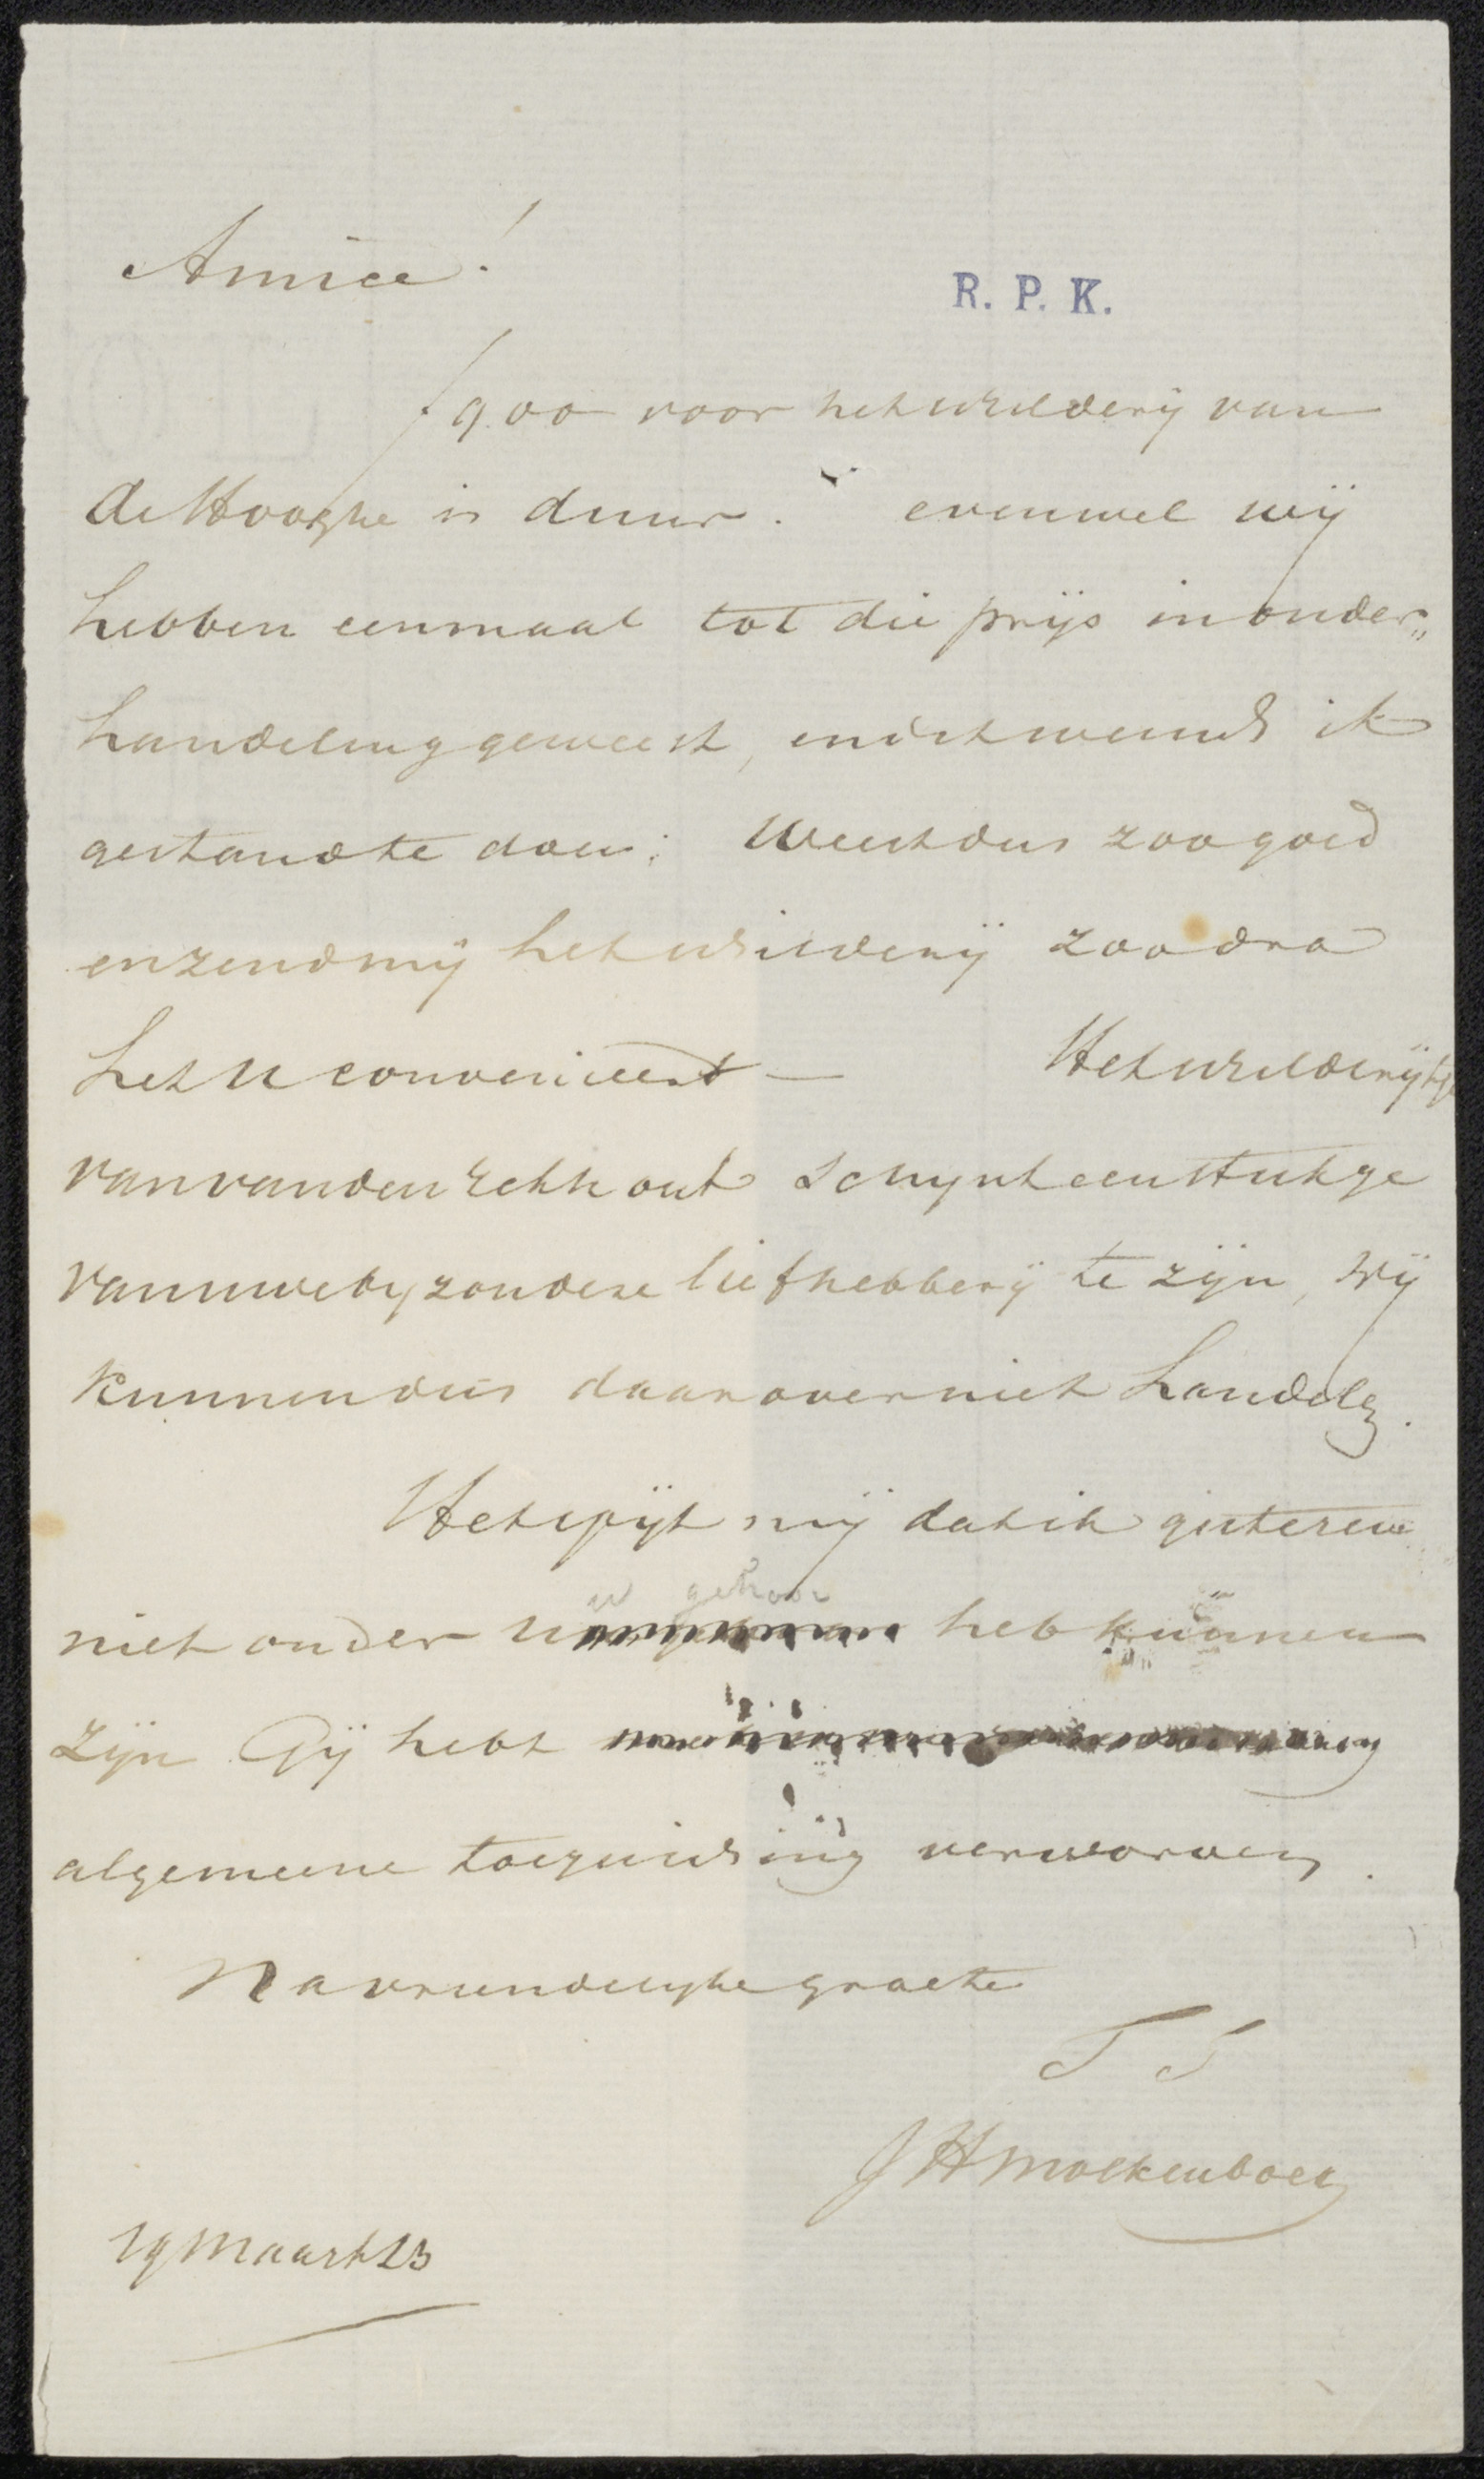 Amice!
R. P. K.
f 900 voor het schilderij van
de Hooghe is duur. evenwel wij
hebben eenmaal tot die prijs in onder„
handeling geweest, en ik wensch ik
gestand te doen: Weest dus zoo goed
en zend mij het schilderij zoodra
het U convenieert — Het schilderijtje
van van den Eekhout schynt een stukje
van uwe byzondere liefhebberij te zijn, wij
kunnen dus daarover niet handelen.
Het spijt mij dat ik gisteren
niet onder uw gehoor heb kunnen
zijn Gij hebt
algemeene toejuiching verworven.
Na vriendelyke groete
T T
J H Molkenboer
19 Maart 23